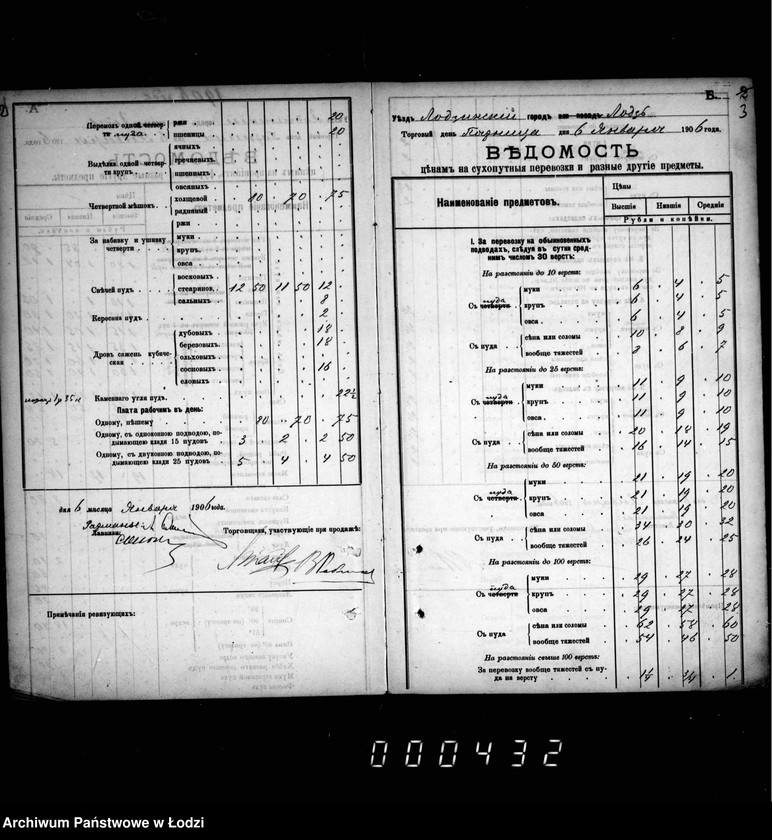 А
Перемолъ одной четверти пуда.
ржи . 20
пшеницы . 20
Выдѣлка одной четверти крупъ.
ячныхъ
гречневыхъ
пшенныхъ
овсяныхъ
Четвертной мѣшокъ.
холщевой . 80 . 70 . 75
рядняный
За набивку и ушивку четверти
ржи
муки
крупъ
овса
Свѣчей пудъ
восковыхъ
стеаринов. 12 50 11 50 12
сальныхъ 8
Керосина пудъ 2
Дровъ сажень кубическая
дубовыхъ 18
березовыхъ 18
ольховыхъ
сосновыхъ 16
еловыхъ
Каменнаго угля пудъ. 22½
Плата рабочимъ въ день:
Одному, пѣшему . 80 . 70 . 75
Одному, съ одноконною подводою, подымающею клади 15 пудовъ 3 . 2 . 2 50
Одному, съ двуконною подводою, подымающею клади 25 пудовъ 5 . 4 . 4 50
дня 6 мѣсяца Января 1906 года.
Торговщики, участвующіе при продажѣ:
Примѣчанія ревизующихъ:
Б.
3
Уѣздъ Лодзинскій городъ Лодзь
Торговый день Пятница дня 6 Января 1906 года.
ВѢДОМОСТЬ
цѣнамъ на сухопутныя перевозки и разные другіе предметы.
Наименованіе предметовъ.
Цѣны
Высшія Нисшія Среднія
Рубли и копѣйки.
I. За перевозку на обыкновенныхъ
подводахъ, слѣдуя въ сутки сред-
нимъ числомъ 30 верстъ:
На разстояніи до 10 верстъ:
Съ четверти пуда
муки . 6 . 4 . 5
крупъ . 6 . 4 . 5
овса . 6 . 4 . 5
Съ пуда
сѣна или соломы . 10 . 8 . 9
вообще тяжестей . 6 . 7
На разстояніи до 25 верстъ:
Съ четверти пуда
муки . 11 . 9 . 10
крупъ . 11 . 9 . 10
овса . 11 . 9 . 10
Съ пуда
сѣна или соломы . 20 . 18 . 19
вообще тяжестей . 16 . 14 . 15
На разстояніи до 50 верстъ:
Съ четверти пуда
муки . 21 . 19 . 20
крупъ . 21 . 19 . 20
овса . 21 . 19 . 20
Съ пуда
сѣна или соломы . 34 . 30 . 32
вообще тяжестей . 26 . 24 . 25
На разстояніи до 100 верстъ:
Съ четверти пуда
муки . 29 . 27 . 28
крупъ . 29 . 27 . 28
овса . 29 . 27 . 28
Съ пуда
сѣна или соломы . 62 . 58 . 60
вообще тяжестей . 54 . 46 . 50
На разстояніи свыше 100 верстъ:
За перевозку вообще тяжестей съ пу-
да на версту . 1
000432
Archiwum Państwowe w Łodzi